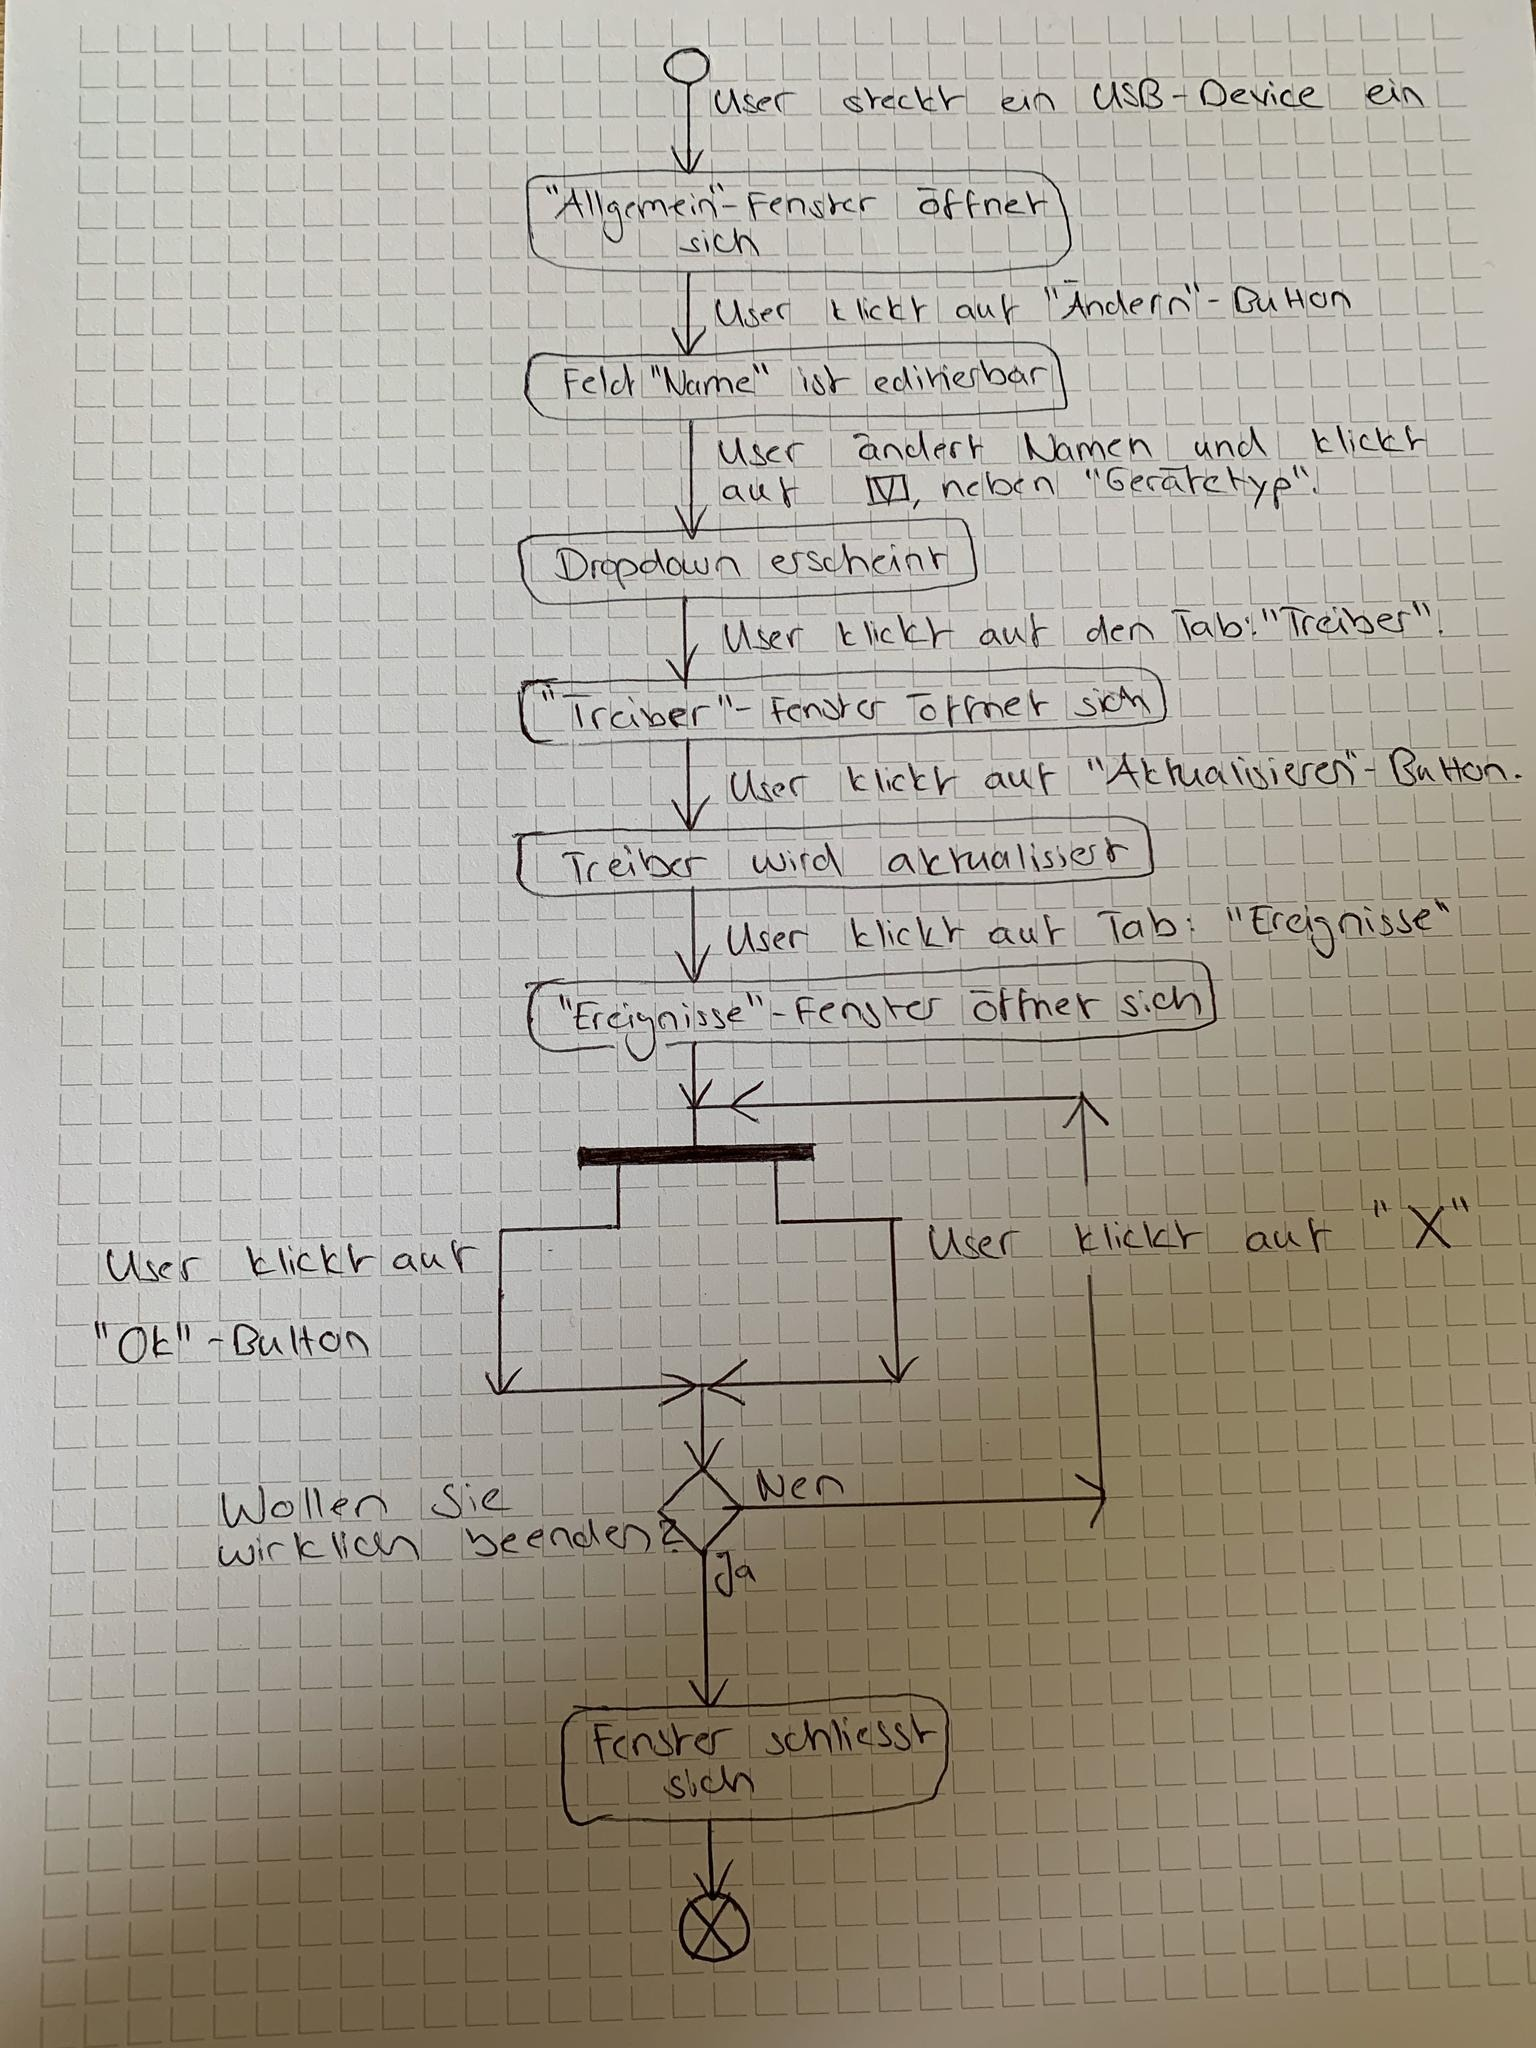 User steckt ein USB-Device ein
"Allgemein"-Fenster öffnet
sich
User klickt auf "Ändern"-Button
Feld "Name" ist editierbar
User ändert Namen und klickt
auf V, neben "Gerätetyp".
Dropdown erscheint
User klickt auf den Tab: "Treiber".
"Treiber"-Fenster öffnet sich
User klickt auf "Aktualisieren"-Button.
Treiber wird aktualisiert
User klickt auf Tab: "Ereignisse"
"Ereignisse"-Fenster öffnet sich
User klickt auf
"Ok"-Button
User klickt auf "X"
Wollen Sie
wirklich beenden?
Nen
Ja
Fenster schliesst
sich